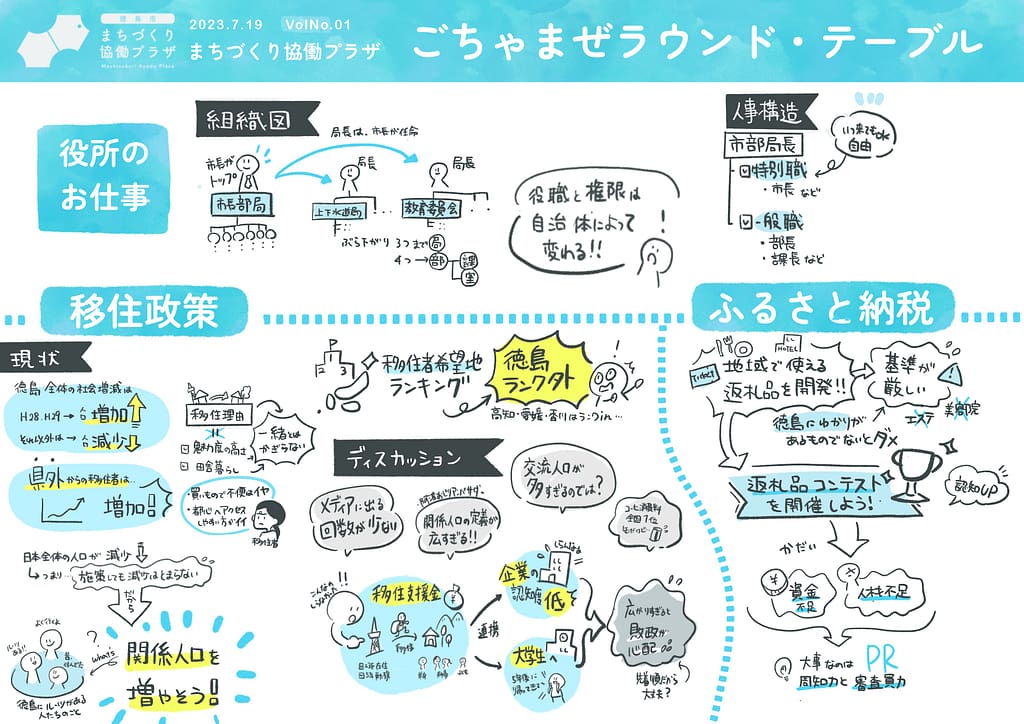 徳島市
まちづくり
協働プラザ
Machizukuri Kyodo Plaza
2023.7.19 VolNo.01
まちづくり協働プラザ
ごちゃまぜラウンド・テーブル
役所の
お仕事
組織図
局長は、市長が任命
市長が
トップ
市長部局
局長
上下水道局
局長
教育委員会
ぶら下がり 3つまで 局
4つ→ 部 課
室
役職と権限は
自治体によって
変わる!!
人事構造
市部局長
特別職
・市長 など
いつ来てもOK
自由
一般職
・部長
・課長 など
移住政策
現状
徳島全体の社会増減は
H28.H29→人口増加
それ以外は→人口減少
県外からの移住者は…
増加!
移住理由
魅力度の高さ
田舎暮らし
一緒とは
かぎらない
・買いもので不便はイヤ
・都心へアクセス
しやすい方がイイ
移住者
日本全体の人口が減少
つまり…施策しても減少はとまらない
だから
what's
徳島にルーツがある
人たちのこと
関係人口を
増やそう!
移住者希望地
ランキング
徳島
ランク外
高知・愛媛・香川はランクin…
ディスカッション
メディアに出る
回数が少ない
阿波おどりアンバサダー
関係人口の定義が
広すぎる!!
交流人口が
多すぎるのでは?
コーヒー消費料
全国7位
こんなの
しらなかった
移住支援金
連携
企業の
認知度 低
しらんなぁ
大学生へ
5年後に
帰ってきてネ
広がりすぎると
敗政が
心配
先着順だから
大丈夫?
ふるさと納税
Ticket
HOTEL
地域で使える
返礼品を開発!!
基準が
厳しい
エステ
美容院
徳島にゆかりが
あるものでないとダメ
返礼品コンテスト
を開催しよう!
認知UP
かだい
資金
不足
人材不足
大事なのは PR
周知力と審査員力